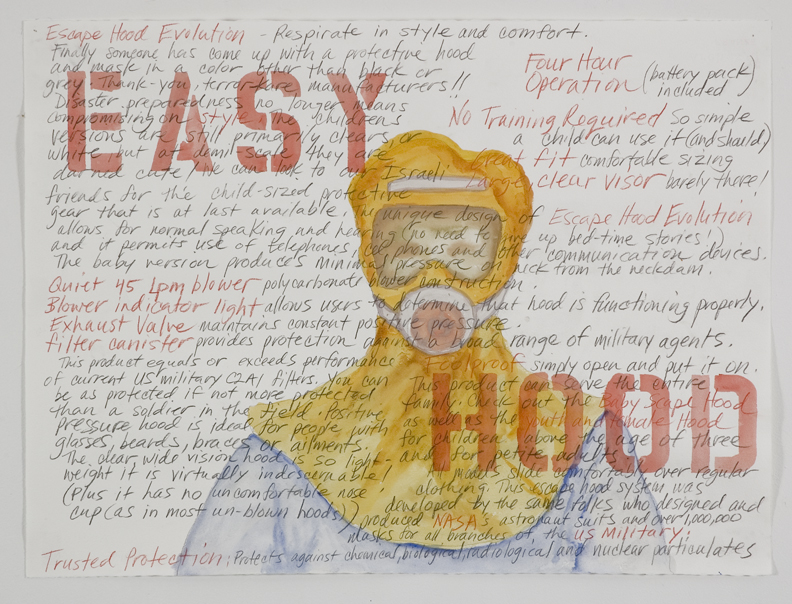 Escape Hood Evolution - Respirate in style and comfort.
Finally someone has come up with a protective hood
and mask in a color other than black or
grey. Thank-you, terror-ware manufacturers!!
Disaster preparedness no longer means
compromising on style. The childrens
versions are still primarily clear or
white but at demi-scale they are
darned cute! We can look to our Israeli
friends for the child-sized protective
gear that is at last available. The unique design of Escape Hood Evolution
allows for normal speaking and hearing (no need to give up bed-time stories!)
and it permits use of telephones, cell phones and other communication devices.
The baby version produces minimal pressure on neck from the neckdam.
EASY
Four Hour
Operation (battery pack included)
No Training Required So simple
a child can use it (and should)
Great fit comfortable sizing
Large, clear visor barely there!
Quiet 45 Lpm blower polycarbonate blower construction.
Blower indicator light allows users to determine that hood is functioning properly.
Exhaust Valve maintains constant positive pressure.
Filter canister provides protection against a broad range of military agents.
This product equals or exceeds performance
of current US military C2A1 filters. You can
be as protected if not more protected
than a soldier in the field. Positive
pressure hood is ideal for people with
glasses, beards, braces or ailments.
The clear wide vision hood is so light-
weight it is virtually indescernable!
(Plus it has no uncomfortable nose
cup (as in most un-blown hoods.)
Fool proof simply open and put it on.
This product can serve the entire
family. Check out the Baby Scape Hood
as well as the Youth and Female Hood
for children above the age of three
and for petite adults.
HOOD
Hoods slide comfortably over regular
clothing. This escape hood system was
developed by the same folks who designed and
produced NASA's astronaut suits and over 1,000,000
masks for all branches of the US Military:
Trusted Protection: Protects against chemical, biological, radiological, and nuclear particulates